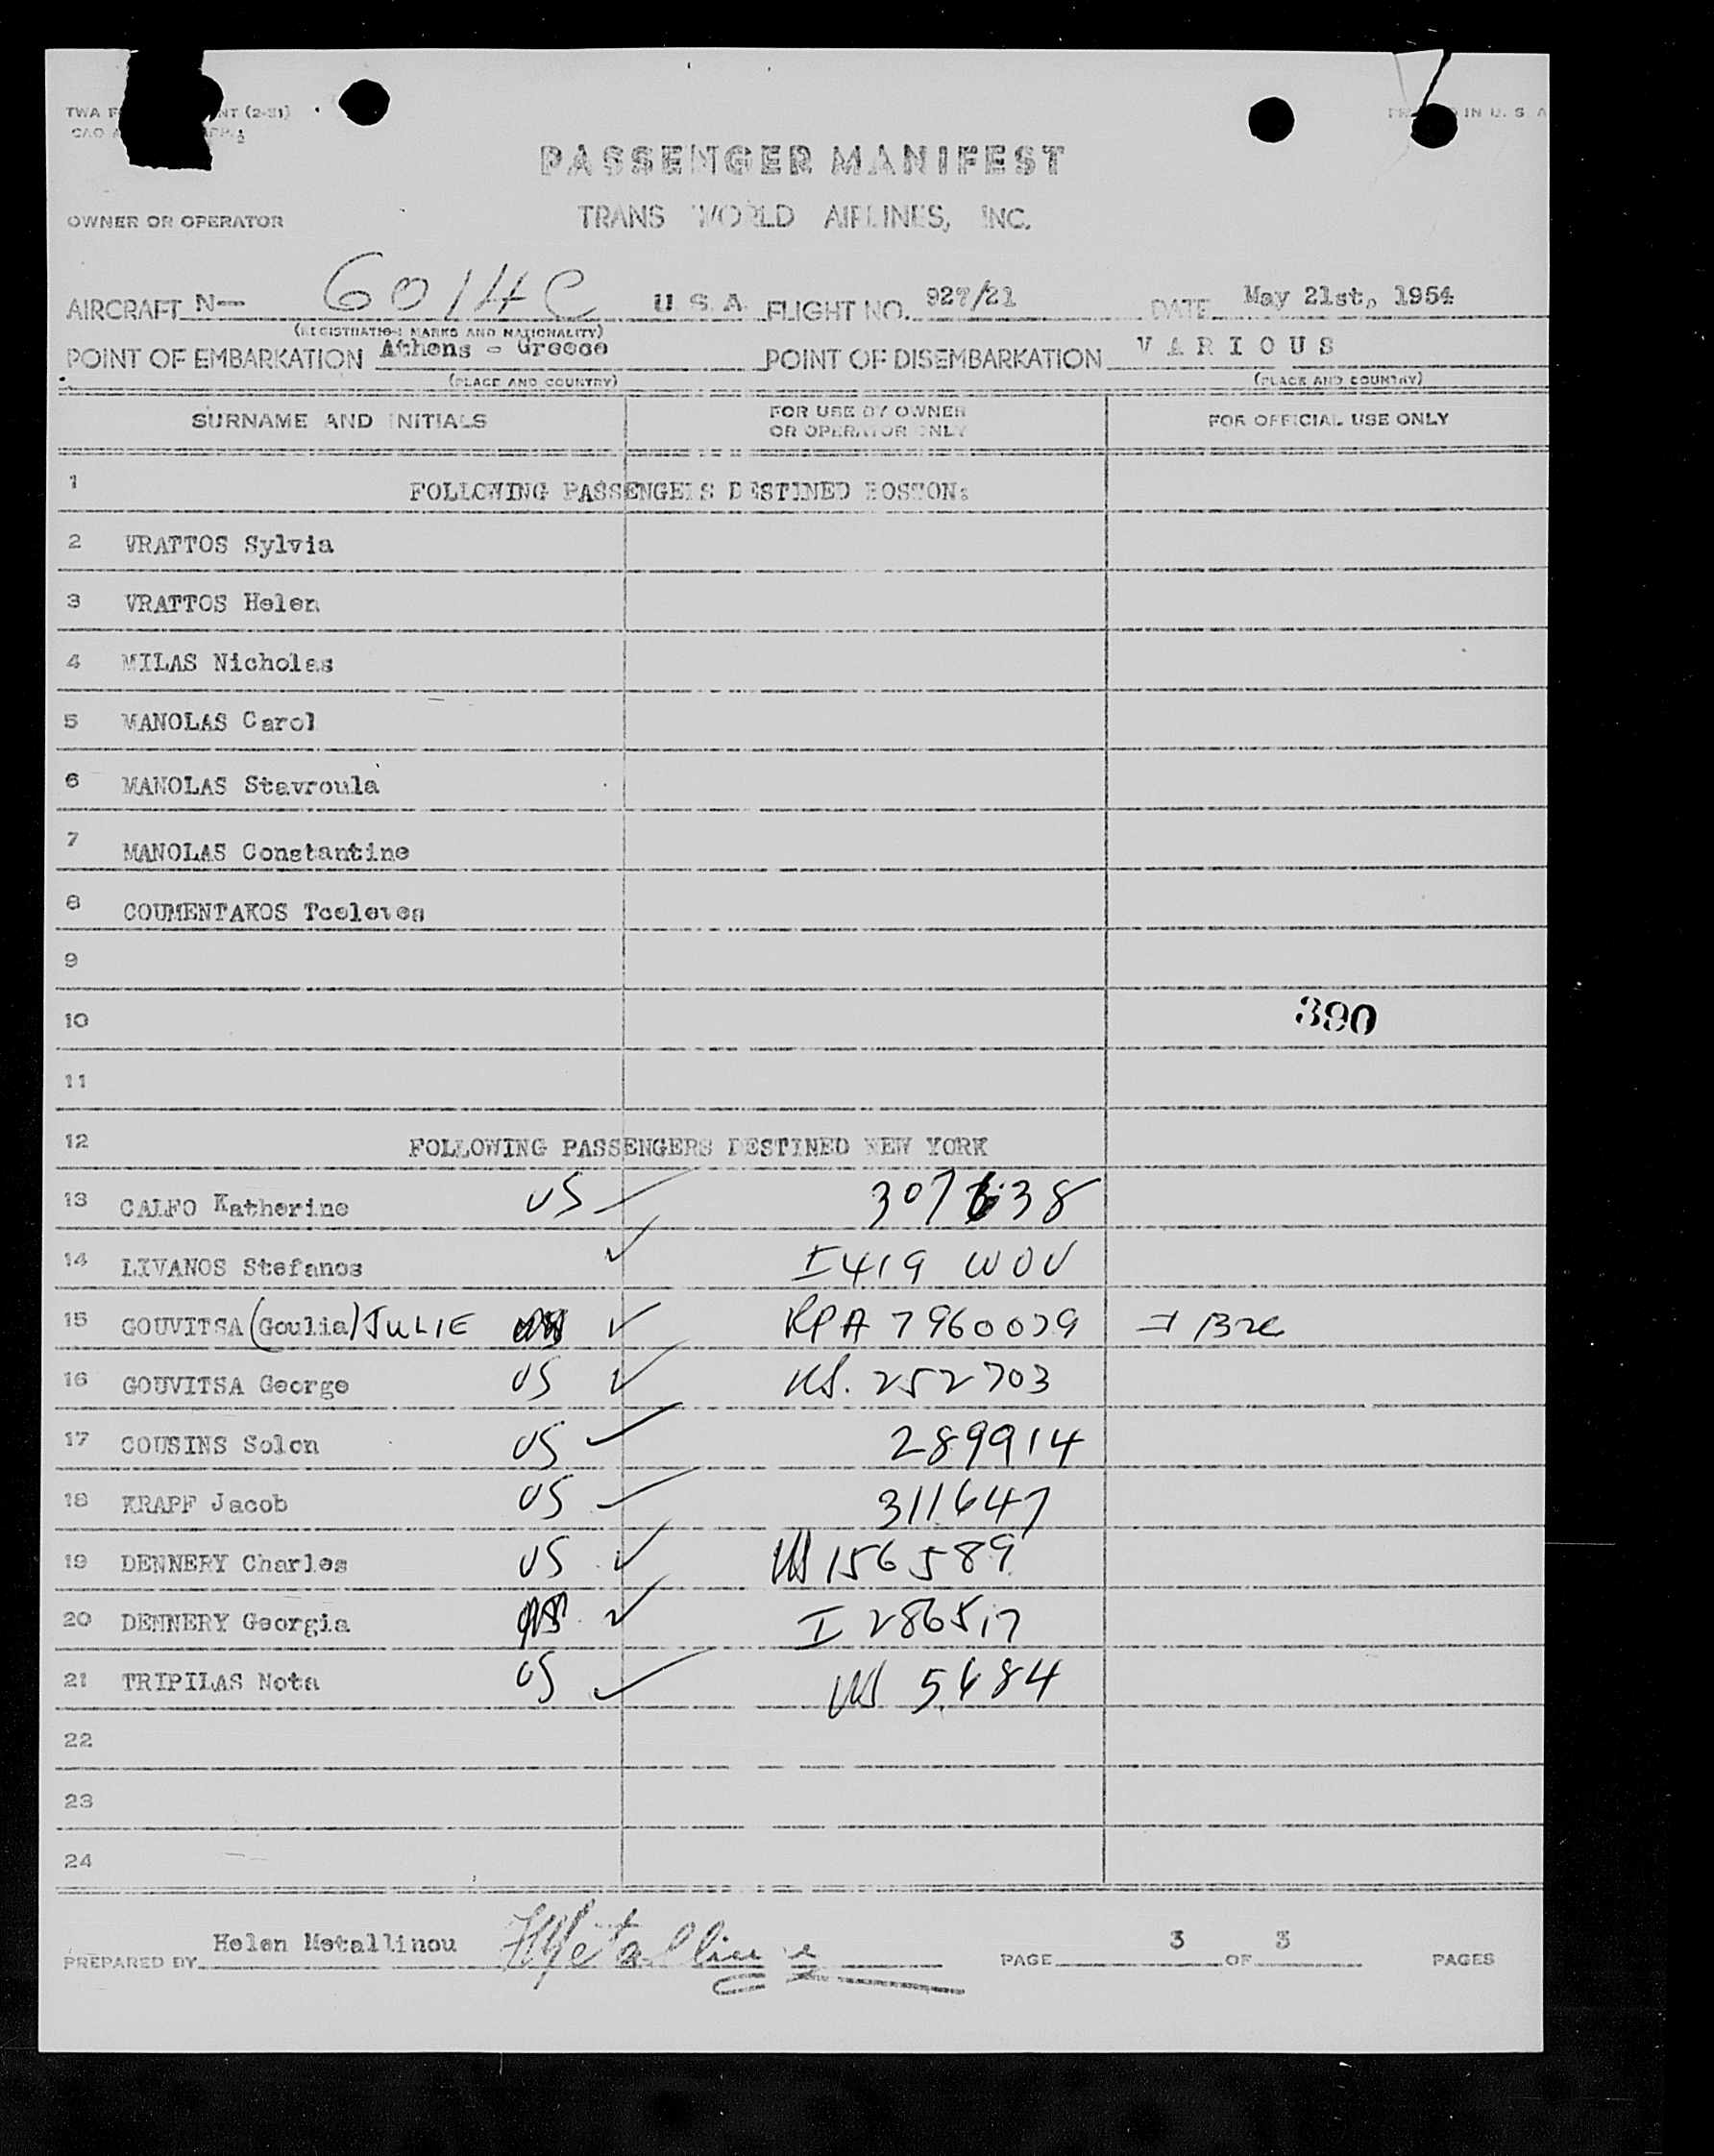 TWA NT (2-51)
CAO
PRINTED IN U. S. A
PASSENGER MANIFEST
OWNER OR OPERATOR TRANS WORLD AIRLINES, INC.
AIRCRAFT N- 6014C U. S. A. FLIGHT NO. 927/21 DATE May 21st, 1954
(REGISTRATION MARKS AND NATIONALITY)
POINT OF EMBARKATION Athens - Greece POINT OF DISEMBARKATION VARIOUS
(PLACE AND COUNTRY) (PLACE AND COUNTRY)
SURNAME AND INITIALS FOR USE BY OWNER OR OPERATOR ONLY FOR OFFICIAL USE ONLY
1 FOLLOWING PASSENGERS DESTINED BOSTON:
2 VRATTOS Sylvia
3 VRATTOS Helen
4 MILAS Nicholas
5 MANOLAS Carol
6 MANOLAS Stavroula
7 MANOLAS Constantine
8 COUMENTAKOS
9
10 390
11
12 FOLLOWING PASSENGERS DESTINED NEW YORK
13 CALFO Katherine US 307638
14 LIVANOS Stefanos ✓ I419 WOV
15 GOUVITSA (Goulia) JULIE ✓ RPA 7960079
16 GOUVITSA George US ✓ US. 252703
17 COUSINS Solon US ✓ 289914
18 KRAPF Jacob US ✓ 311647
19 DENNERY Charles US ✓ US 156589
20 DENNERY Georgia ✓ I 286517
21 TRIPILAS Nota US ✓ US 5684
22
23
24
PREPARED BY Helen Metallinou HMetallinou PAGE 3 OF 3 PAGES